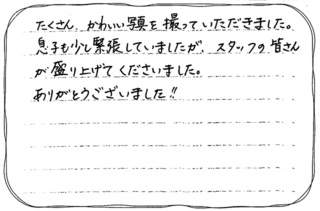 たくさん、かわいい写真を撮っていただきました。
息子も少し緊張していましたが、スタッフの皆さん
が盛り上げてくださいました。
ありがとうございました!!